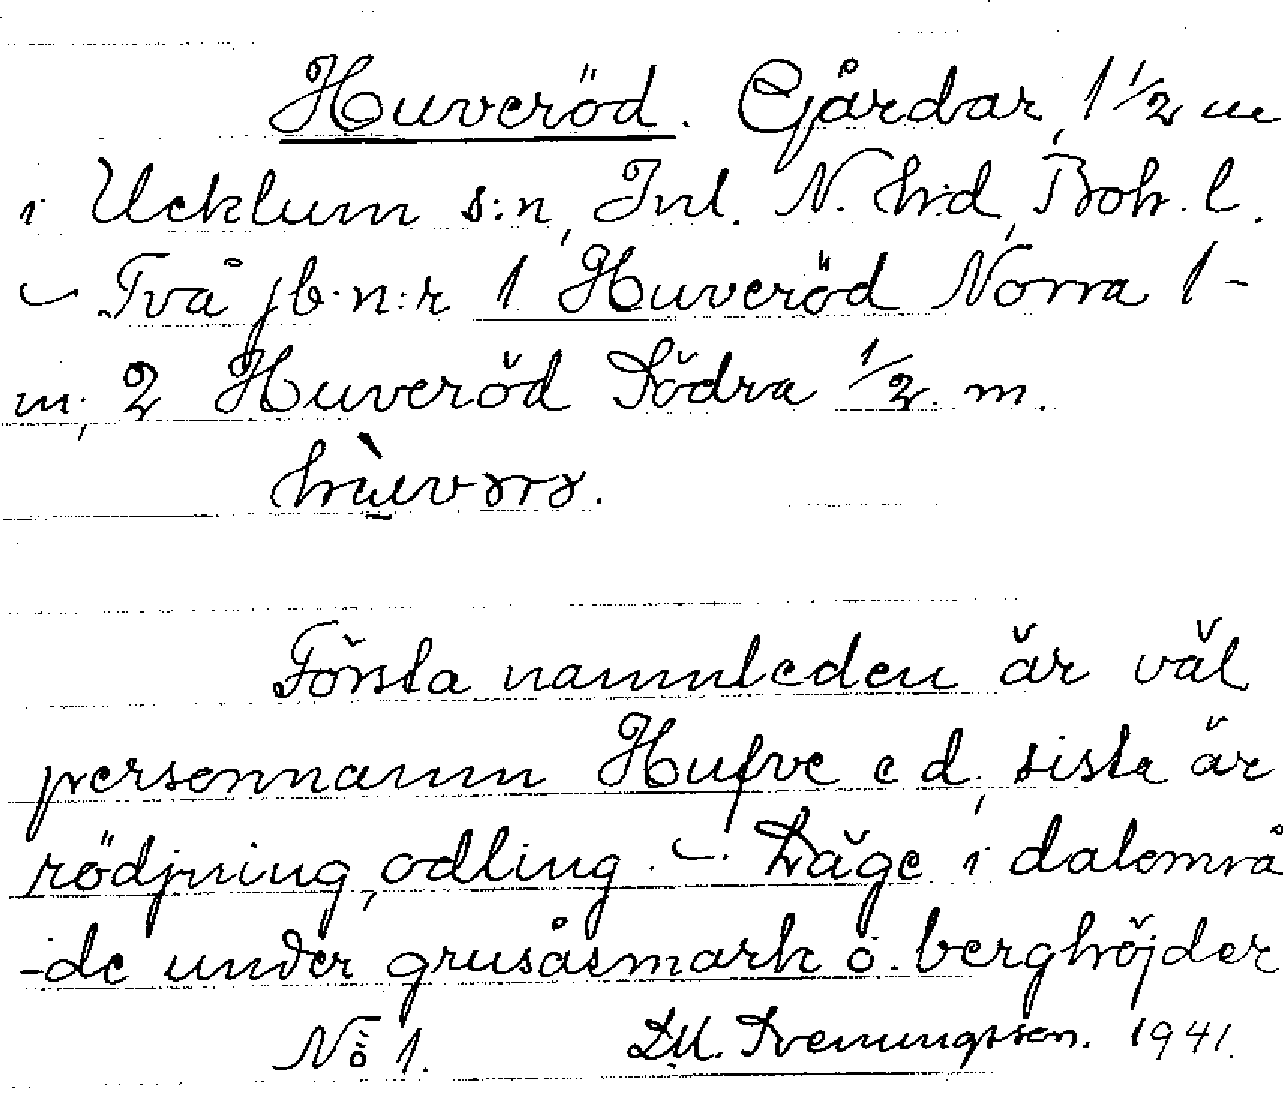 Huveröd. Gårdar, 1 1/2 m
i Ucklum s:n, Inl. N. h:d, Boh. l.
– Två jb.n:r 1 Huveröd Norra 1 -
m; 2 Huveröd Södra 1/2 m.

Första namnleden är väl
personnamn Hufve e d; sista är
rödjning, odling. – Läge i dalområ
-de under grusåsmark o. berghöjder
No 1. D.U. Svenungsson. 1941.